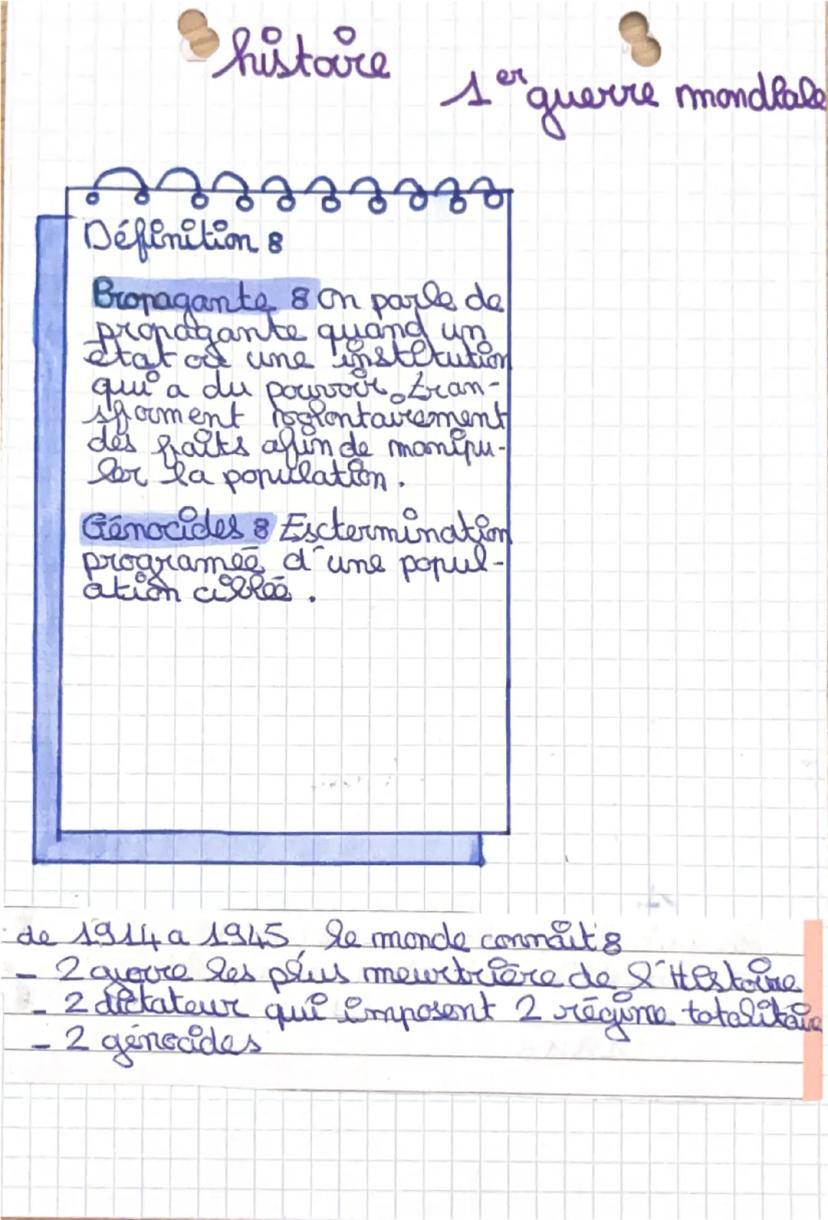 histoire
1er guerre mondiale
Définition :
Propagante : On parle de
propagante quand un
état où une institution
qui a du pouvoir, tran-
sforment volontairement
des faits afin de manipu-
ler la population.
Génocides : Esctermination
programée d'une popul-
ation ciblée.
de 1914 a 1945 le monde connaît :
- 2 guerre les plus meurtrière de l'Histoire
- 2 dictateur qui imposent 2 régime totalitaire
- 2 génocides